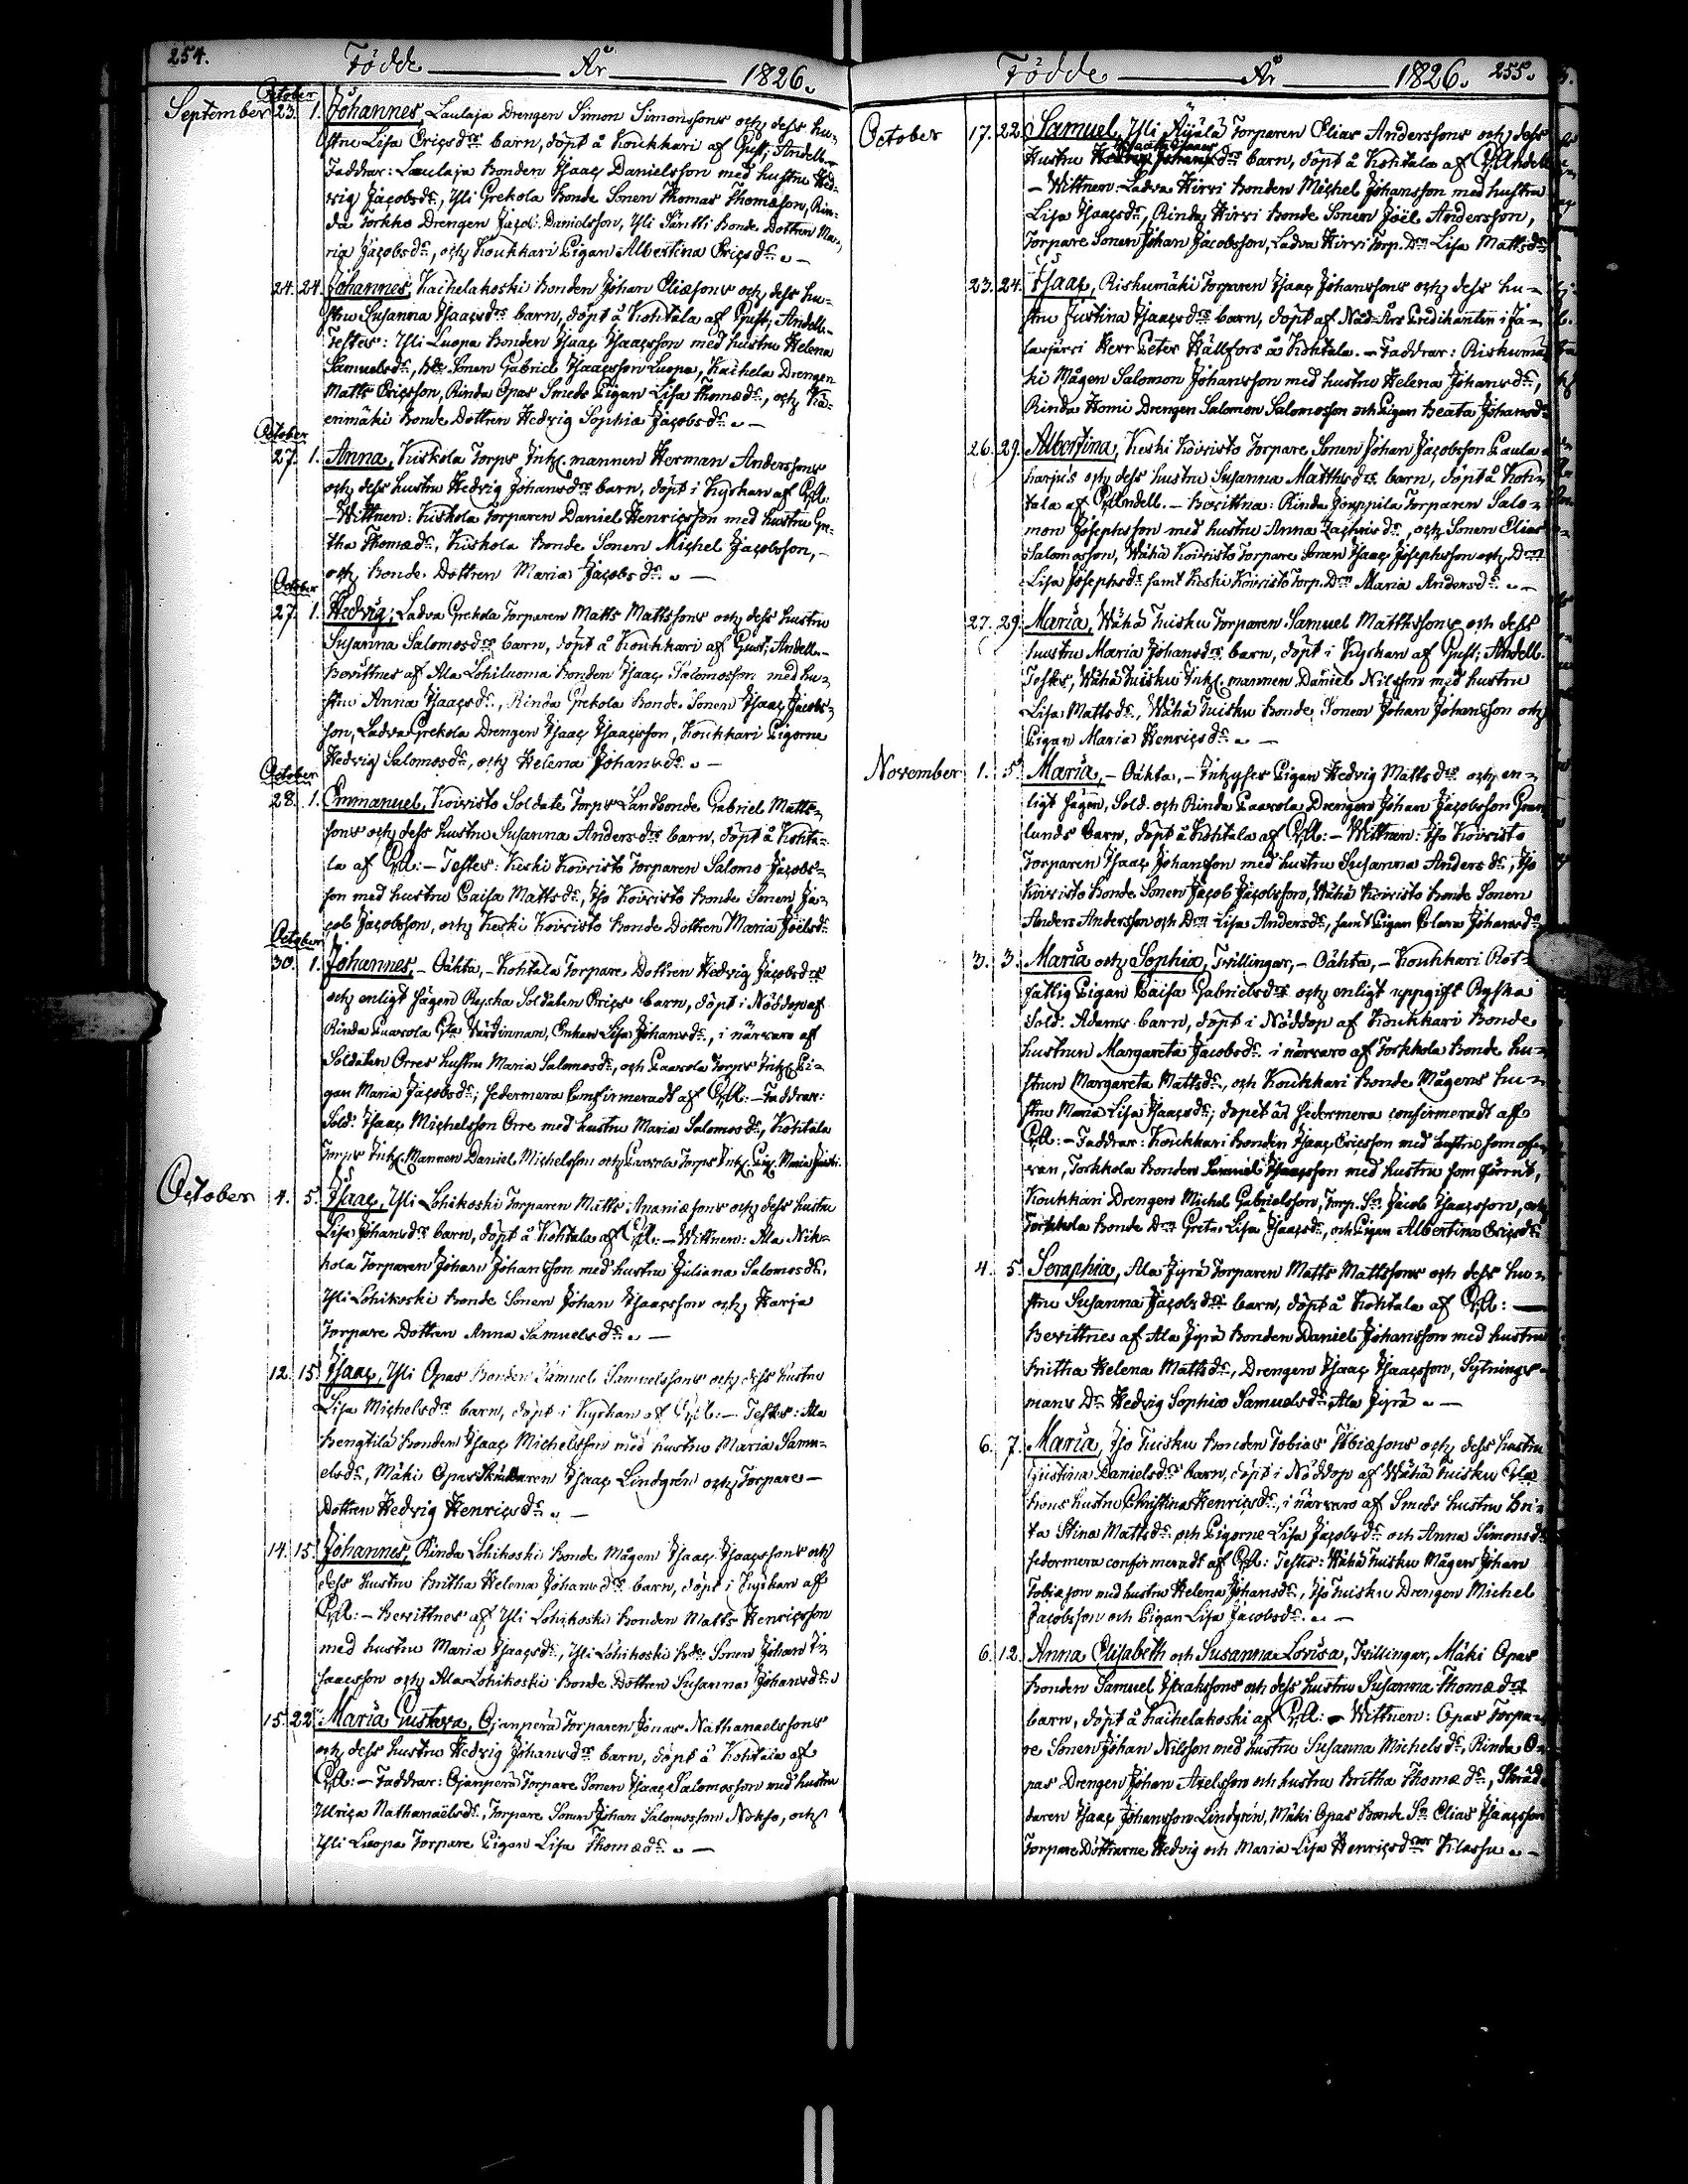 254.
Födde År 1826.
October
September 23. 1. Johannes, Laulaja Drengen Simon Simonssons och dess hu-
stru Lisa Ericsdrs barn, döpt å Koukkari af Gust; Andell.
Faddrar: Laulaja Bonden Isaac Danielsson med hustru Hed-
vig Jacobsdr, Yli Grekola Bonde Sonen Thomas Thomæson, Rin-
da Torkko Drengen Jacob Danielsson, Yli Säntti Bonde Dottren Ma-
ria Jacobsdr, och Koukkari Pigan Albertina Ericsdr.
24. 24. Johannes, Kaihelakoski Bonden Johan Eliæsons och dess hu-
stru Susanna Isaacsdrs barn, döpt å Kohtala af Gust; Andell.
Testes: Yli Luopa Bonden Isaac Isaacsson med hustru Helena
Samuelsdr, Bde Sonen Gabriel Isaacsson Luopa, Kaihela Drengen
Matts Ericsson, Rinda Opas Smeds Pigan Lisa Thomædr, och Ka-
enmäki Bonde Dottren Hedvig Sophia Jacobsdr.
October
27. 1. Anna, Kiskola Torps Inh. mannen Herman Anderssons
och dess hustru Hedvig Johansdrs barn, döpt i Kyrkan af GA:
- Wittnen: Kiskola Torparen Daniel Henricsson med hustru Gre-
tha Thomædr, Kiskola Bonde Sonen Michel Jacobsson,
och Bonde Dottren Maria Jacobsdr.
October
27. 1. Hedvig, Ladva Grekola Torparen Matts Mattssons och dess hustru
Susanna Salomosdrs barn, döpt å Koukkari af Gust; Andell.
Bevittnes af Ala Lohiluoma Bonden Isaac Salomosson med hu-
stru Anna Isaacsdr, Rinda Grekola Bonde Sonen Isaac Jacobs-
son, Ladva Grekola Drengen Isaac Isaacsson, Koukkari Pigorne
Hedvig Salomosdr, och Helena Johansdr.
October
28. 1. Emmanuel, Koivisto Soldate Torps Landbonde Gabriel Matts-
sons och dess hustru Susanna Andersdrs barn, döpt å Kohta-
la af GA: - Testes: Keski Koivisto Torparen Salomo Jacobs-
son med hustru Caisa Mattsdr, Iso Koivisto Bonde Sonen Ja-
cob Jacobsson, och Keski Koivisto Bonde Dottren Maria Joëlsdr.
October
30. 1. Johannes, - Oäkta, - Kohtala Torpare Dottren Hedvig Jacobsdrs
och enligt sägen Ryska Soldaten Erics barn, döpt i Nöddop af
Rinda Luavola Enkan Lisa Johansdr, i närvaro af
Soldaten Orres hustru Maria Salomosdr, och Paavola Torps Inh. Pi-
gan Maria Jacobsdr; sedermera Confirmeradt af GA: - Faddrar:
Sold. Isaac Michelsson Orre med hustru Maria Salomosdr, Kohtala
Torps Inh. Mannen Daniel Michelsson och Paavola Torps Inh. Pig. Maria
October 4. 5. Isaac, Yli Lohikoski Torparen Matts Ananiæsons och dess hustru
Lisa Johansdrs barn, döpt å Kohtala af GA: - Wittnen: Ala Nik-
kola Torparen Johan Johansson med hustru Juliana Salomosdr,
Yli Lohikoski Bonde Sonen Johan Isaacsson och Harja
Torpare Dottren Anna Samuelsdr.
12. 15. Isaac, Yli Opas Bonden Samuel Samuelssons och dess hustru
Lisa Michelsdrs barn, döpt i Kyrkan af GA: - Testes: Ala
Bengtilä Bonden Isaac Michelsson med hustru Maria Samu-
elsdr, Mäki Opas Skräddaren Isaac Lindgrén och Torpare
Dottren Hedvig Henricsdr.
14. 15. Johannes, Rinda Lohikoski Bonde Mågen Isaac Isaacssons och
dess hustru Britha Helena Johansdrs barn, döpt i Kyrkan af
GA: - Bevittnes af Yli Lohikoski Bonden Matts Henricsson
med hustru Maria Isaacsdr, Yli Lohikoski Bde Sonen Johan I-
saacsson och Ala Lohikoski Bonde Dottren Susanna Johansdr.
15. 22. Maria Gustava, Ojanperä Torparen Jonas Nathanaelssons
och dess hustru Hedvig Johansdrs barn, döpt å Kohtala af
GA: - Faddrar: Ojanperä Torpare Sonen Isaac Salomosson med hustru
Ulrica Nathanaëlsdr, Torpare Sonen Johan Salomosson Nokso, och
Yli Luopa Torpare Pigan Lisa Thomædr.
Födde År 1826. 255.
October 17. 22. Samuel, Yli Äijälä Torparen Elias Anderssons och dess
Hustru Hedvig Johansdrs barn, döpt å Kohtala af G: Andell
- Wittnen: Ladva Hirvi Bonden Michel Johansson med hustru
Lisa Isaacsdr, Rinda Hirvi Bonde Sonen Joël Andersson,
Torpare Sonen Johan Jacobsson, Ladva Hirvi Torp. Dn Lisa Mattsdr
23. 24. Isaac, Riskumäki Torparen Isaac Johanssons och dess hu-
stru Justina Isaacsdrs barn, döpt af Nåd-Års Predikanten i Ja-
lasjärvi Herr Peter Hällfors å Kohtala. - Faddrar: Riskumä-
ki Mågen Salomon Johansson med hustru Helena Johansdr,
Rinda Homi Drengen Salomon Salomosson och Pigan Beata Johansdr
26. 29. Albertina, Keski Koivisto Torpare Sonen Johan Jacobsson Paula-
harjus och dess hustru Susanna Matthsdrs barn, döpt å Koh-
tala af G: Andell. - Bevittna: Rinda Jouppila Torparen Salo-
mon Josephsson med hustru Anna Zachrisdr, och Sonen Elias
Salomosson, Wähä Koivisto Torpare Sonen Isaac Josephsson och Drn
Lisa Josephsdr samt Keski Koivisto Torp. Drn Maria Andersdr.
27. 29. Maria, Wähä Tuisku Torparen Samuel Matthsons och dess
hustru Maria Johansdrs barn, döpt i Kyrkan af Gust; Andell.
Testes, Wähä Tuisku Inh. mannen Daniel Nilsson med hustru
Lisa Mattsdr, Wähä Tuisku Bonde Sonen Johan Johansson och
Pigan Maria Henricsdr.
November 1. 5. Maria, - Oäkta, - Inhyses Pigan Hedvig Mattsdrs och en-
ligt sägen, Sold. och Rinda Paavola Drengen Johan Jacobsson Gran-
lunds barn, döpt å Kohtala af GA: - Wittnen: Iso Koivisto
Torparen Isaac Johansson med hustru Susanna Andersdr, Iso
Koivisto Bonde Sonen Jacob Jacobsson, Wähä Koivisto Bonde Sonen
Anders Andersson och Drn Lisa Andersdr, samt Pigan Clara Johansdr
3. 3. Maria och Sophia, Tvillingar, - Oäkta, - Koukkari Rot-
fattig Pigan Caisa Gabrielsdrs och enligt uppgift Ryska
Sold. Adams barn, döpt i Nöddop af Koukkari Bonde
hustrun Margareta Jacobsdr i närvaro af Torkkola Bonde hu-
strun Margareta Mattsdr, och Koukkari Bonde Mågens hu-
stru Maria Lisa Isaacsdr; döpet är sedermera confirmeradt aff
GA: - Faddrar: Koukkari Bonden Isaac Ericsson med hustru som ofvan
Torkkola Bonden Isaacsson med hustru som förrnt,
Koukkari Drengen Michel Gabrielsson, Torp. Sn Jacob Isaacsson, och
Torkkola Bonde Drn Greta Lisa Isaacsdr, och Pigan Albertina Ericsdr
4. 5. Seraphia, Ala Jyrä Torparen Matts Mattssons och dess hu-
stru Susanna Jacobsdrs barn, döpt å Kohtala af GA: -
Bevittnes af Ala Jyrä Bonden Daniel Johansson med hustru
Britha Helena Mattsdr, Drengen Isaac Isaacsson, Sytnings-
mans Dr Hedvig Sophia Samuelsdr Ala Jyrä
6. 7. Maria, Iso Tuisku Bonden Tobias Tobiæsons och dess hustru
Justina Danielsdrs barn, döpt i Nöddop af Wähä Tuisku
hustru Christina Henricsdr, i närvaro af Smeds hustru Bri-
ta Stina Mattsdr, och Pigorne Lisa Jacobsdr och Anna Simonsdr
sedermera confirmeradt af GA: Testes: Wähä Tuisku Mågen Johan
Tobiæson med hustru Helena Johansdr, Iso Tuisku Drengen Michel
Jacobsson och Pigan Lisa Jacobsdr.
6. 12. Anna Elisabeth och Susanna Lovisa, Tvillingar, Mäki Opas
Bonden Samuel Isakssons och dess hustru Susanna Thomædrs
barn, döpt å Kaihelakoski af GA: - Wittnen: Opas Torpa-
re Sonen Johan Nilsson med hustru Susanna Michelsdr, Rinda O-
pas Drengen Johan Axelsson och hustru Britha Thomædr, Skräd-
daren Isaac Johansson Lindgrén, Mäki Opas Bonde Sn Elias Isaacsson
Torpare Döttrarne Hedvig och Maria Lisa Henricsdrar Klassu